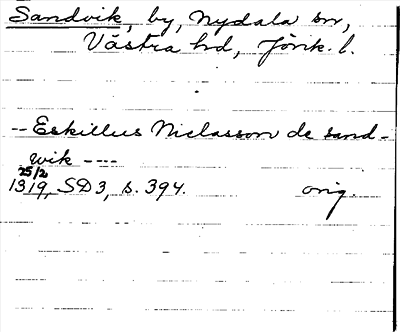 Sandvik, by, Nydala sn,
Västra hd, Jönk. l.
-- Eskillus Niclasson de sand-
wik ----
25/2
1319, SD 3, s. 394. orig.